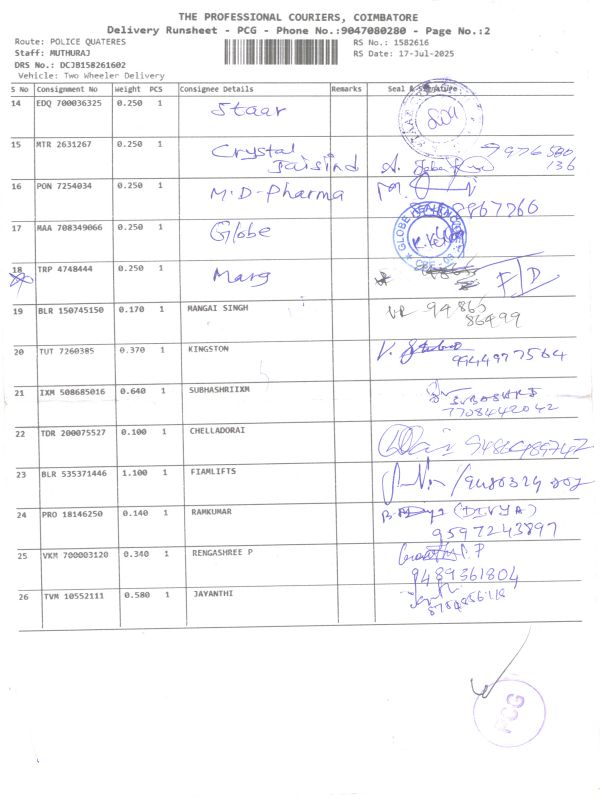 THE PROFESSIONAL COURIERS, COIMBATORE
Delivery Runsheet - PCG - Phone No.:9047080280 - Page No.:2
Route: POLICE QUATERES RS No.: 1582616
Staff: MUTHURAJ RS Date: 17-Jul-2025
DRS No.: DCJB158261602
Vehicle: Two Wheeler Delivery
S No Consignment No Weight PCS Consignee Details Remarks Seal & Signature
14 EDQ 700036325 0.250 1 Staar
15 MTR 2631267 0.250 1 Crystal Jaisind 7976580 136
16 PON 7254034 0.250 1 M.D-Pharma
17 MAA 708349066 0.250 1 Globe
18 TRP 4748444 0.250 1 Marg F/D
19 BLR 150745150 0.170 1 MANGAI SINGH 94865 86499
20 TUT 7260385 0.370 1 KINGSTON 9444977564
21 IXM 508685016 0.640 1 SUBHASHRIIXM 7708442042
22 TDR 200075527 0.100 1 CHELLADORAI
23 BLR 535371446 1.100 1 FIAMLIFTS
24 PRO 18146250 0.140 1 RAMKUMAR (DIVYA) 9597243897
25 VKM 700003120 0.340 1 RENGASHREE P 9489361804
26 TVM 10552111 0.580 1 JAYANTHI
PCG